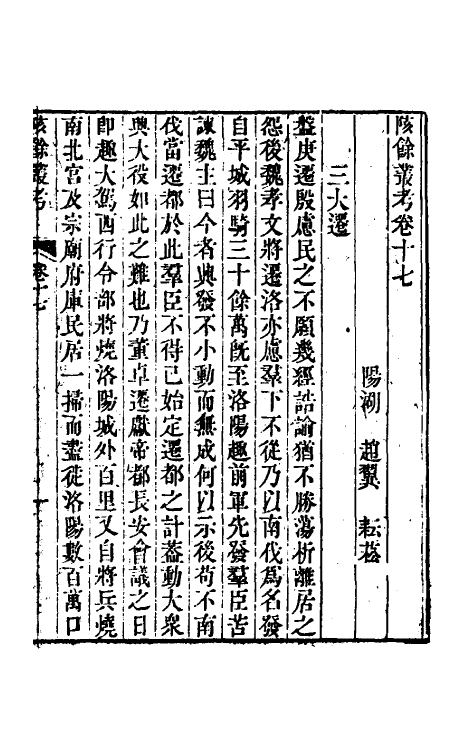 陔餘叢考卷十七
陽湖 趙翼 耘菘
三大遷
盤庚遷殷慮民之不願幾經誥諭猶不勝蕩析離居之
怨後魏孝文將遷洛亦慮羣下不從乃以南伐爲名發
自平城羽騎三十餘萬旣至洛陽趣前軍先發羣臣苦
諫魏主曰今者興發不小動而無成何以示後苟不南
伐當遷都於此羣臣不得已始定遷都之計蓋動大衆
興大役如此之難也乃董卓遷獻帝都長安會議之日
卽趣大駕西行令部將燒洛陽城外百里又自將兵燒
南北宮及宗廟府庫民居一掃而盡徙洛陽數百萬口
陔餘叢考
卷十七
一